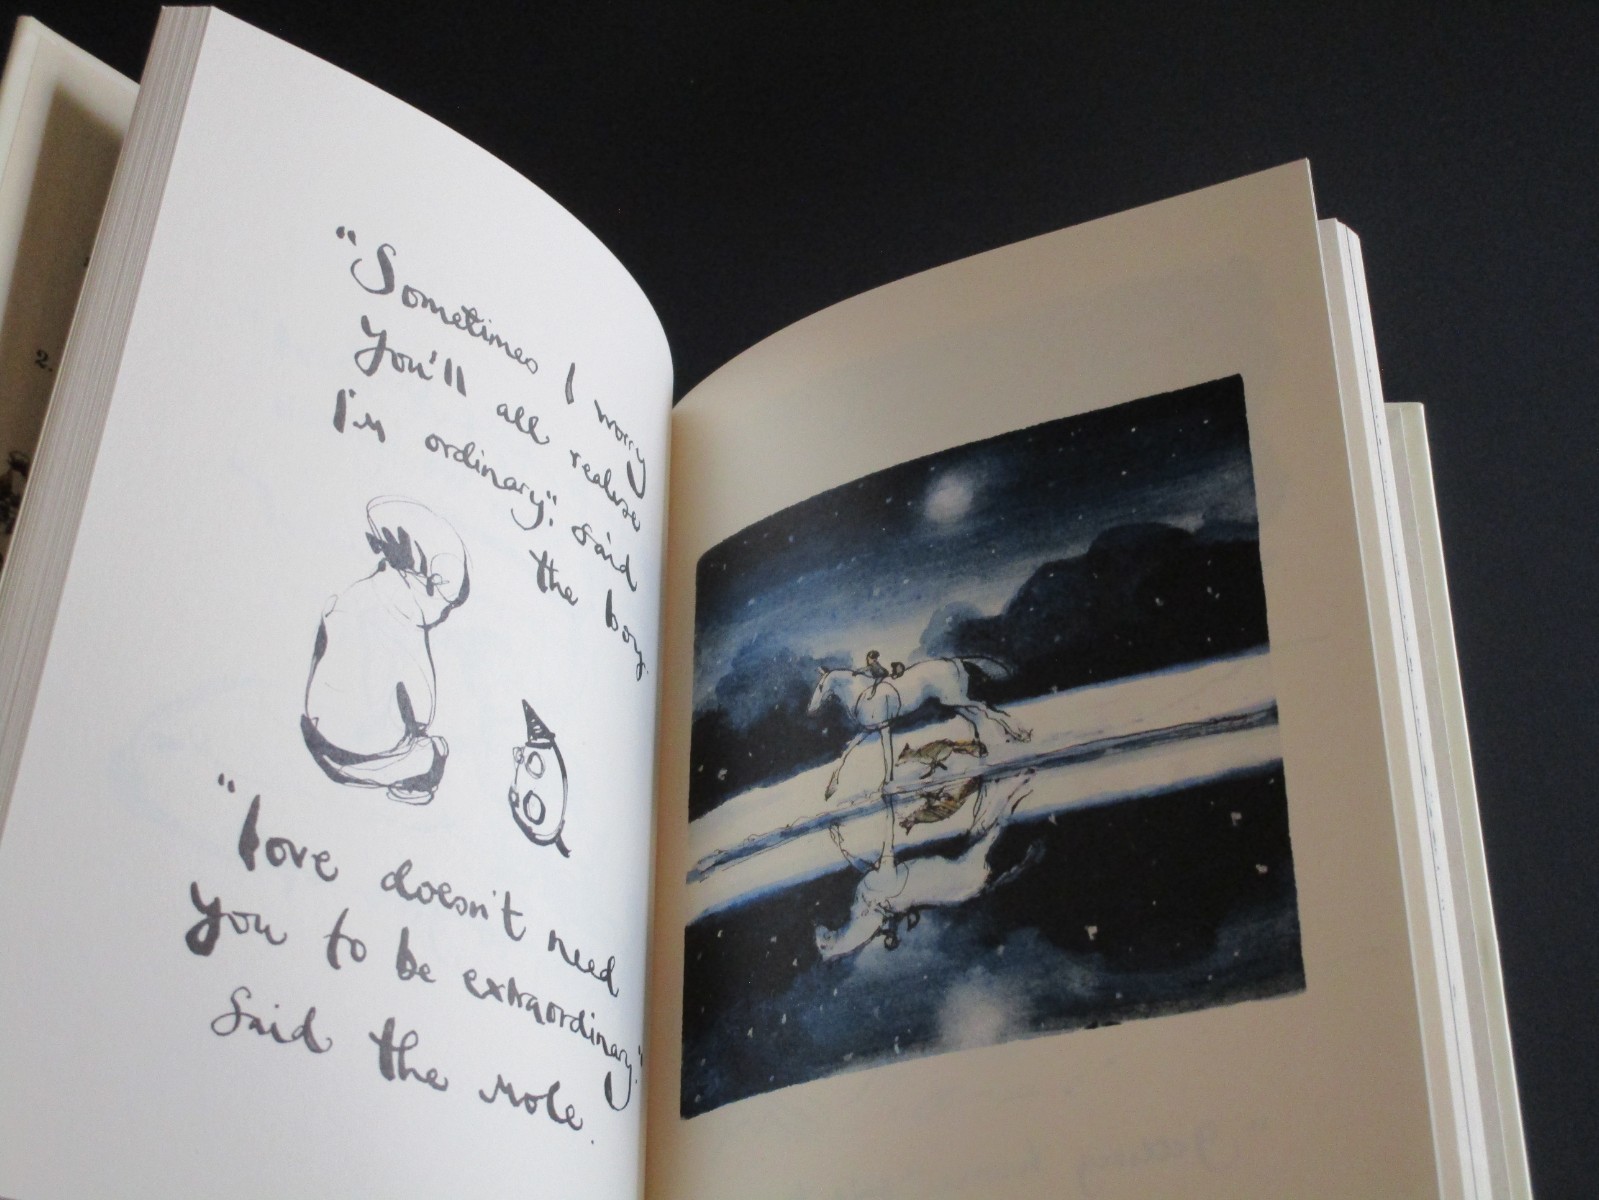 "Sometimes I worry
you'll all realise
I'm ordinary", said
the boy.
"love doesn't need
you to be extraordinary"
said the mole.
2.